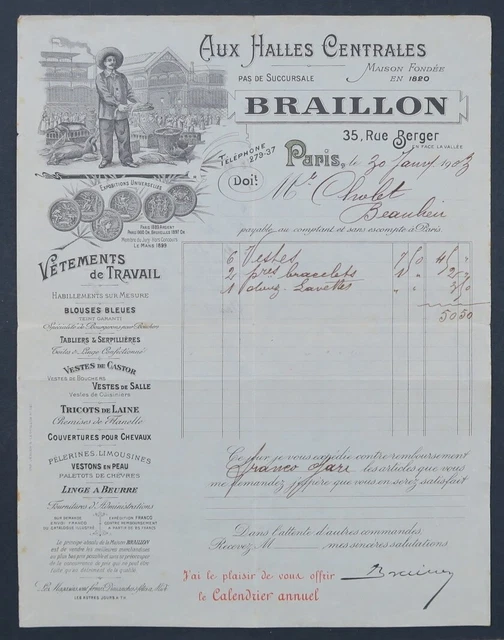 AUX HALLES CENTRALES
PAS DE SUCCURSALE
MAISON FONDÉE
EN 1820
BRAILLON
35, Rue Berger
EN FACE LA VALLÉE
TÉLÉPHONE
279-37
Paris, le 30 Janv 1903
Doit
Mr Cholet
Beaulieu
payable au comptant et sans escompte à Paris.
EXPOSITIONS UNIVERSELLES
Membre du Jury Hors Concours
LE MANS 1899
6 Vestes 7 "
2 pres bracelets
1 douz. Lavettes
50 50
VÊTEMENTS
DE TRAVAIL
HABILLEMENTS SUR MESURE
BLOUSES BLEUES
TEINT GARANTI
Spécialité de Bourgerons pour Bouchers
TABLIERS & SERPILLIÈRES
Toile & Linge Confectionnés
VESTES DE CASTOR
VESTES DE BOUCHERS
VESTES DE SALLE
Vestes de Cuisinière
TRICOTS DE LAINE
Chemises de Flanelle
COUVERTURES POUR CHEVAUX
PÈLERINES, LIMOUSINES
VESTONS EN PEAU
PALETOTS DE CHÈVRES
LINGE A BEURRE
Fournitures d'Administrations
SUR DEMANDE
ENVOI FRANCO
DU CATALOGUE ILLUSTRÉ
EXPÉDITION FRANCO
CONTRE REMBOURSEMENT
A PARTIR DE 25 FRANCS
Le principe absolu de la Maison BRAILLON
est de vendre les meilleures marchandises
LES AUTRES JOURS A 7 H.
Ce jour je vous expédie contre remboursement
franco gare les articles que vous
me demandez j'espère que vous en serez satisfait
Dans l'attente d'autres commandes.
Recevez M mes sincères salutations.
J'ai le plaisir de vous offrir
le Calendrier annuel